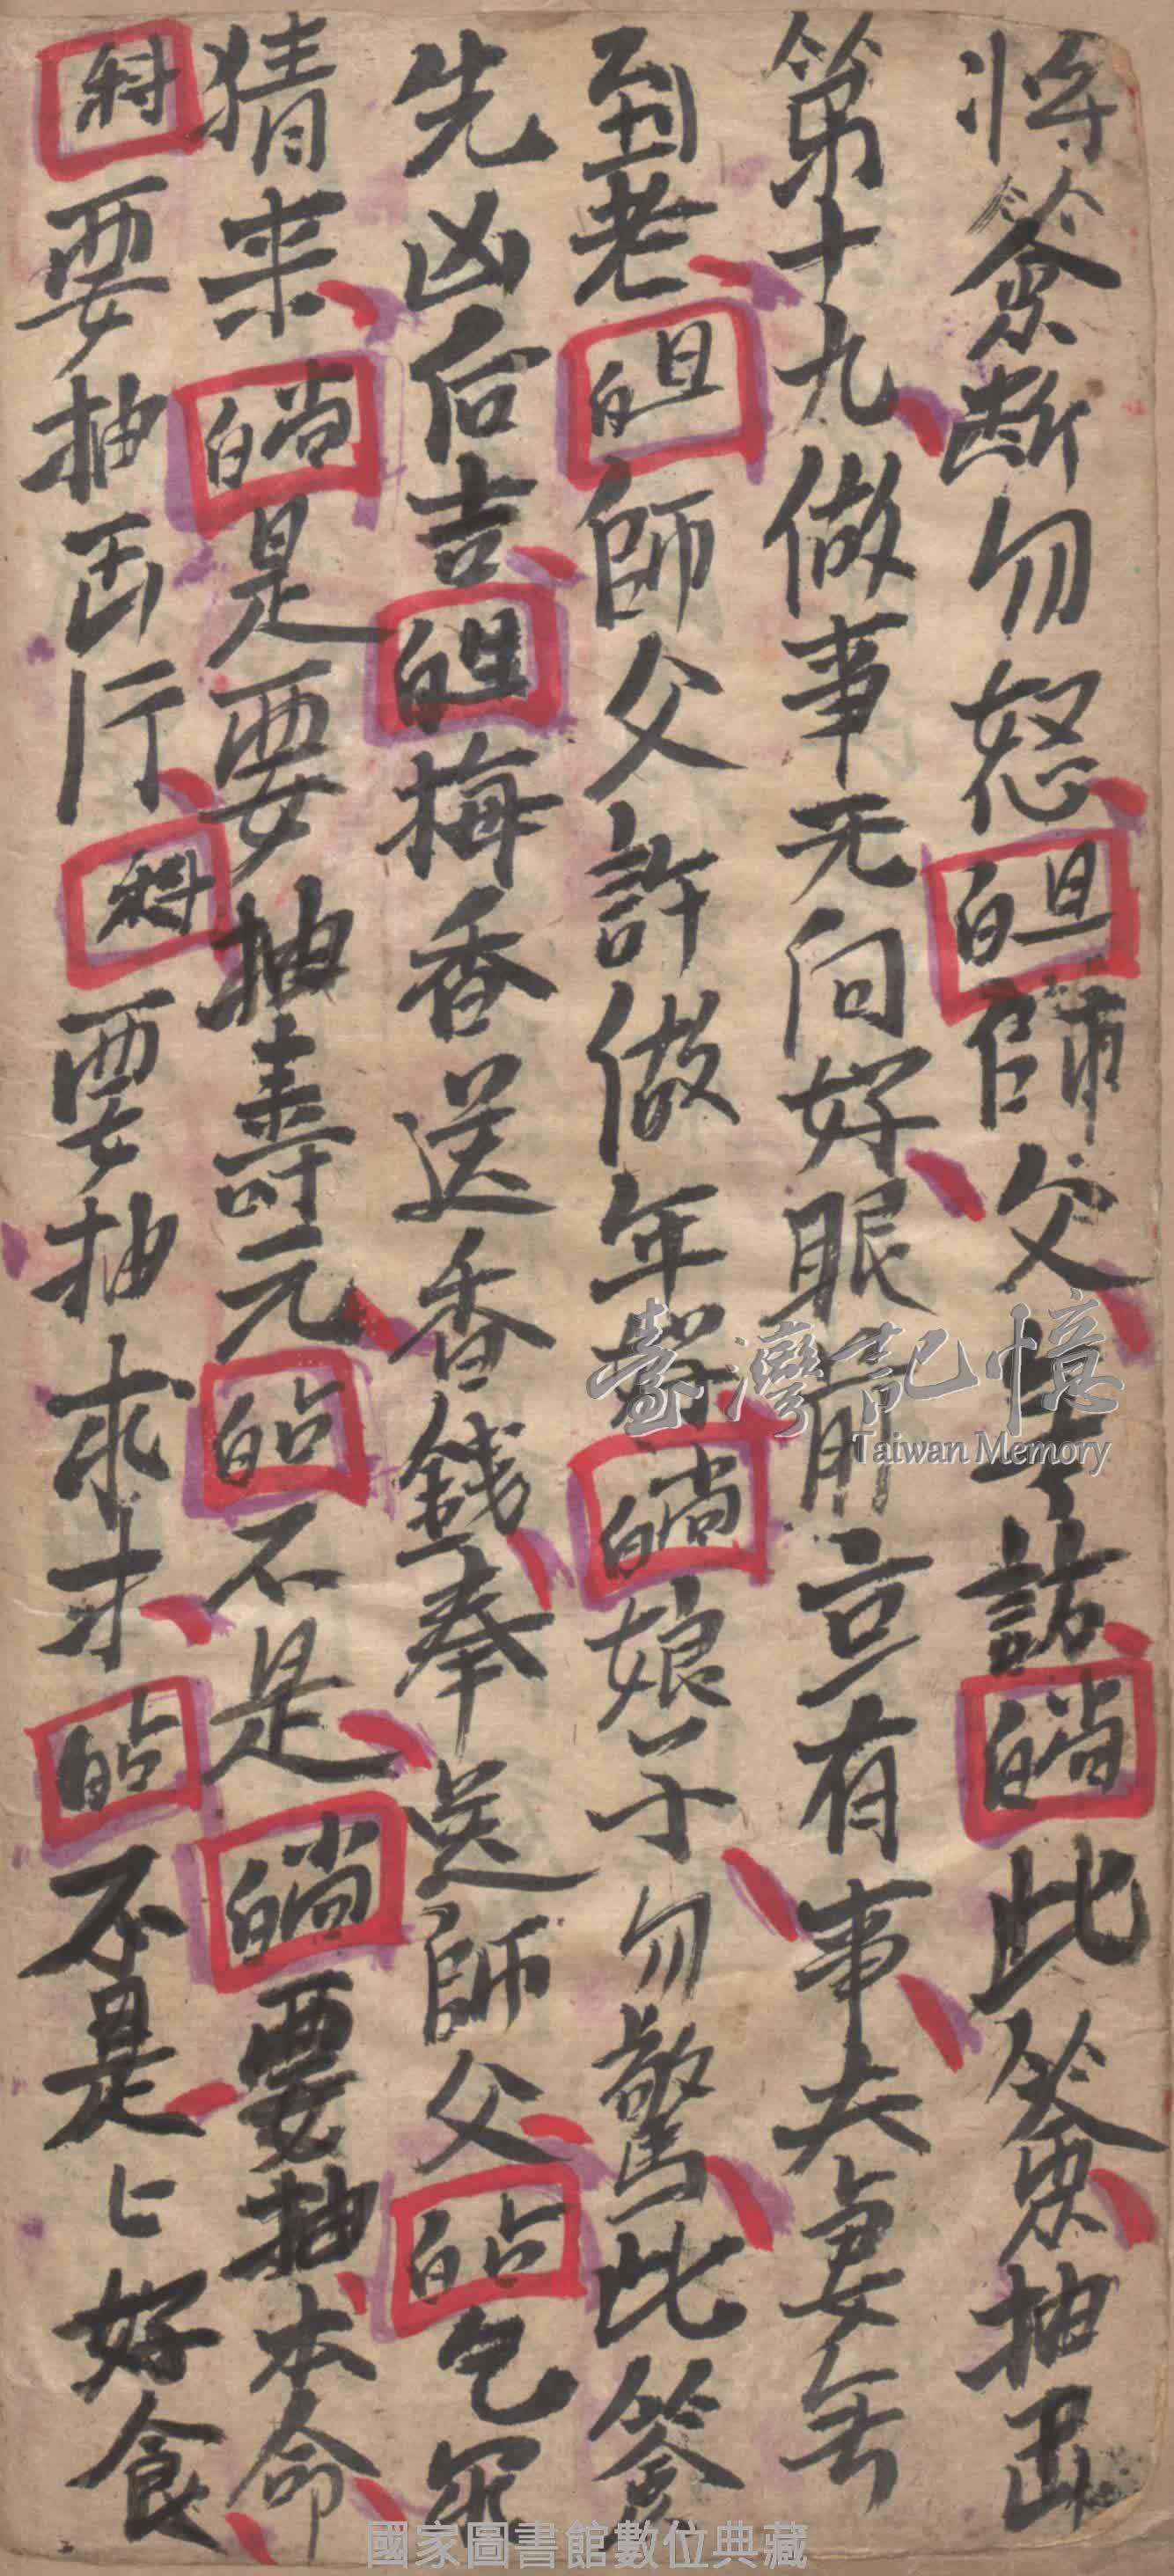 将簽票断勿怒 旦白 師父 詩 尚白 此簽票抽出
第十九做事无向好眼前言有事夫妻年
到老 旦白 師父許做年 尚白 娘子勿驚此簽
先凶后吉 生白 梅香送香錢奉送師父 占白 乞罪
猜来 尚白 是要抽壽元 占白 不是 尚白 要抽本命
科 要抽出行 科 要抽求才 占白 不是匕好食
臺灣記憶
Taiwan Memory
國家圖書館數位典藏